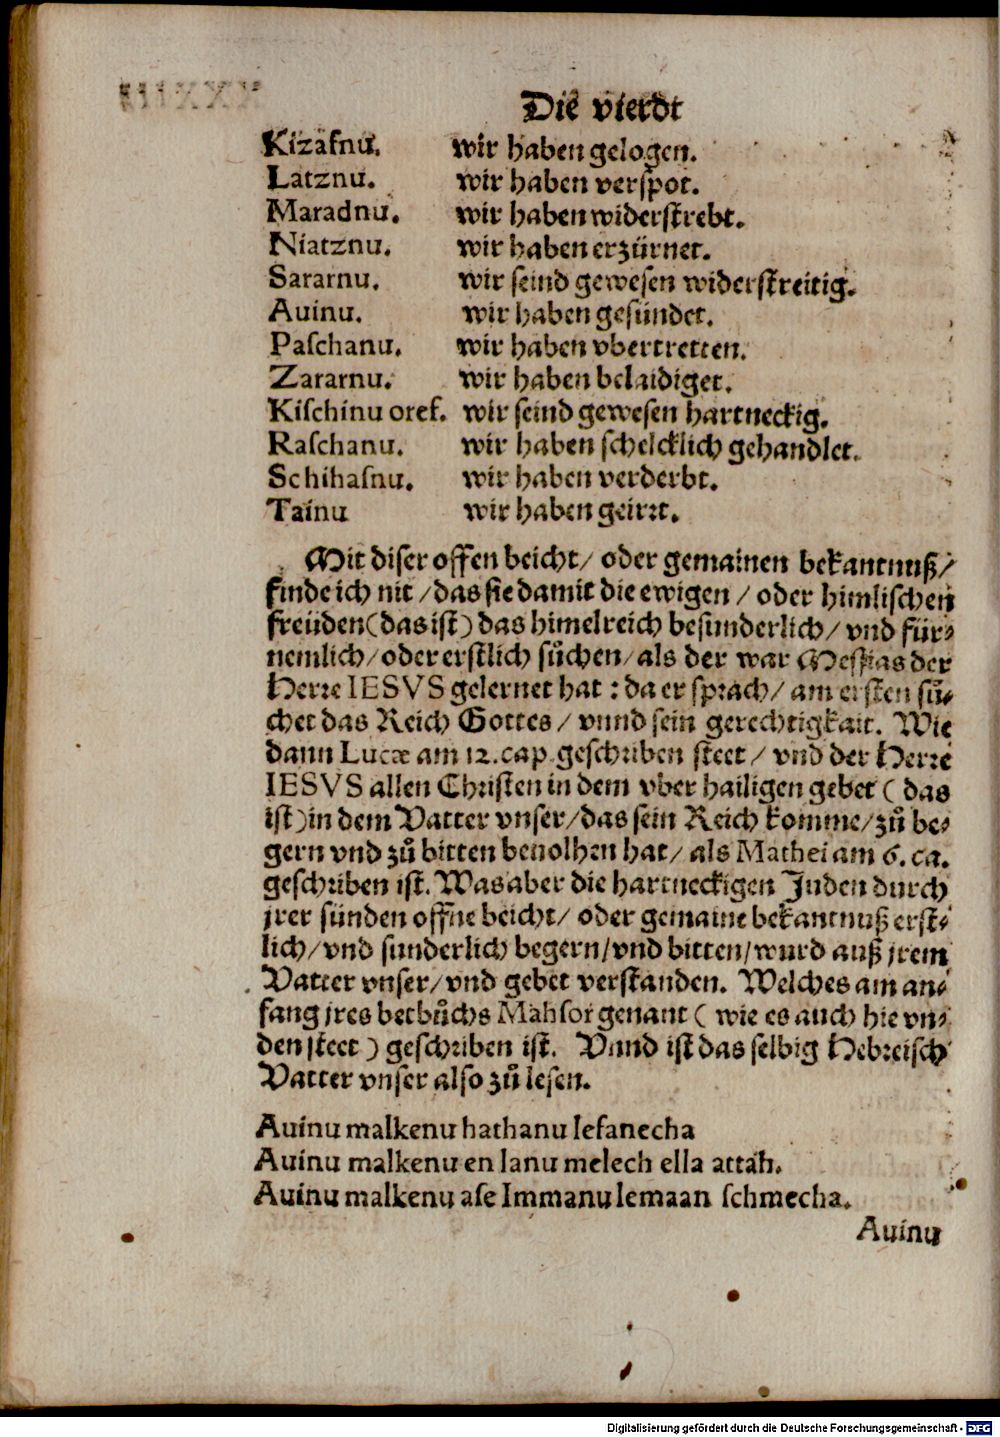 Die vierdt
Kizafnu. wir haben gelogen.
Latznu. wir haben verspot.
Maradnu. wir haben widerstrebt.
Niatznu. wir haben erzürnet.
Sararnu. wir seind gewesen widerstreitig.
Auinu. wir haben gesündet.
Paſchanu. wir haben vbertretten.
Zararnu. wir haben belaidiget.
Kiſchinu oref. wir seind gewesen hartneckig.
Raſchanu. wir haben schelcklich gehandlet.
Schihaſnu. wir haben verderbt.
Tainu wir haben geirrt.
Mit diser offen beicht/ oder gemainen bekantnuß/
finde ich nit/das sie damit die ewigen/ oder himlischen
freüden(das ist) das himelreich besunderlich/ vnd für-
nemlich/oder erstlich sůchen/als der war Messias der
Herre IESVS gelernet hat : da er sprach/ am ersten sů-
chet das Reich Gottes/ vnnd sein gerechtigkait. Wie
dann Lucæ am 12. cap. geschriben steet/ vnd der Herre
IESVS allen Christen in dem vber hailigen gebet ( das
ist)in dem Vatter vnser/das sein Reich komme/zů be-
gern vnd zů bitten beuolhen hat/ als Mathei am 6. ca.
geschriben ist. Was aber die hartneckigen Juden durch
jrer sünden offne beicht/ oder gemaine bekantnuß erst-
lich/vnd sunderlich begern/vnd bitten/wurd auß jrem
Vatter vnser/vnd gebet verstanden. Welches am an-
fang jres betbůchs Mahſor genant ( wie es auch hie vn-
den steet ) geschriben ist. Vnnd ist das selbig Hebreisch
Vatter vnser also zů lesen.
Auinu malkenu hathanu lefanecha
Auinu malkenu en lanu melech ella attah.
Auinu malkenu aſe Immanu lemaan ſchmecha.
Auinu
Digitalisierung gefördert durch die Deutsche Forschungsgemeinschaft - DFG